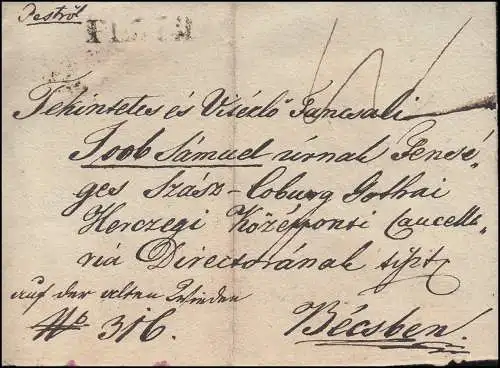 Pestről
PESTH
Tekintetes és Vitézlő Tancsali
Joob Sámuel úrnak Fensé„
ges Szász-Coburg Gothai
Herczegi Középponti Cancell„
ria Directorának tiszt.
auf der alten Wieden
No 316.
Bécsben.